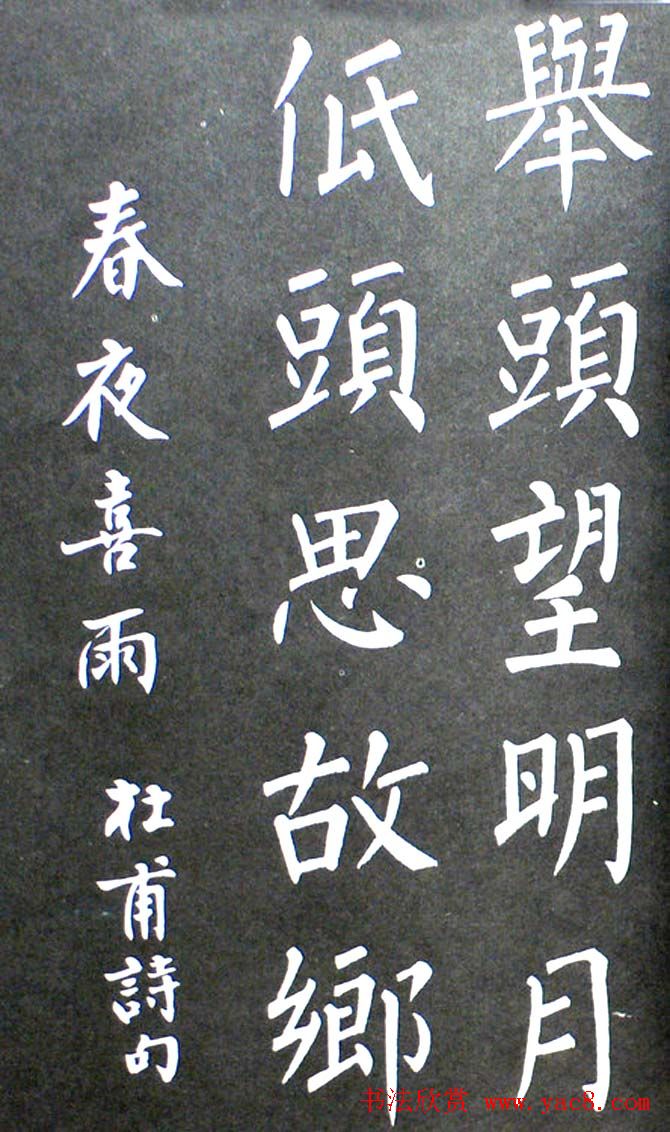 舉頭望明月
低頭思故鄉
春夜喜雨 杜甫詩句
书法欣赏 www.yac8.com